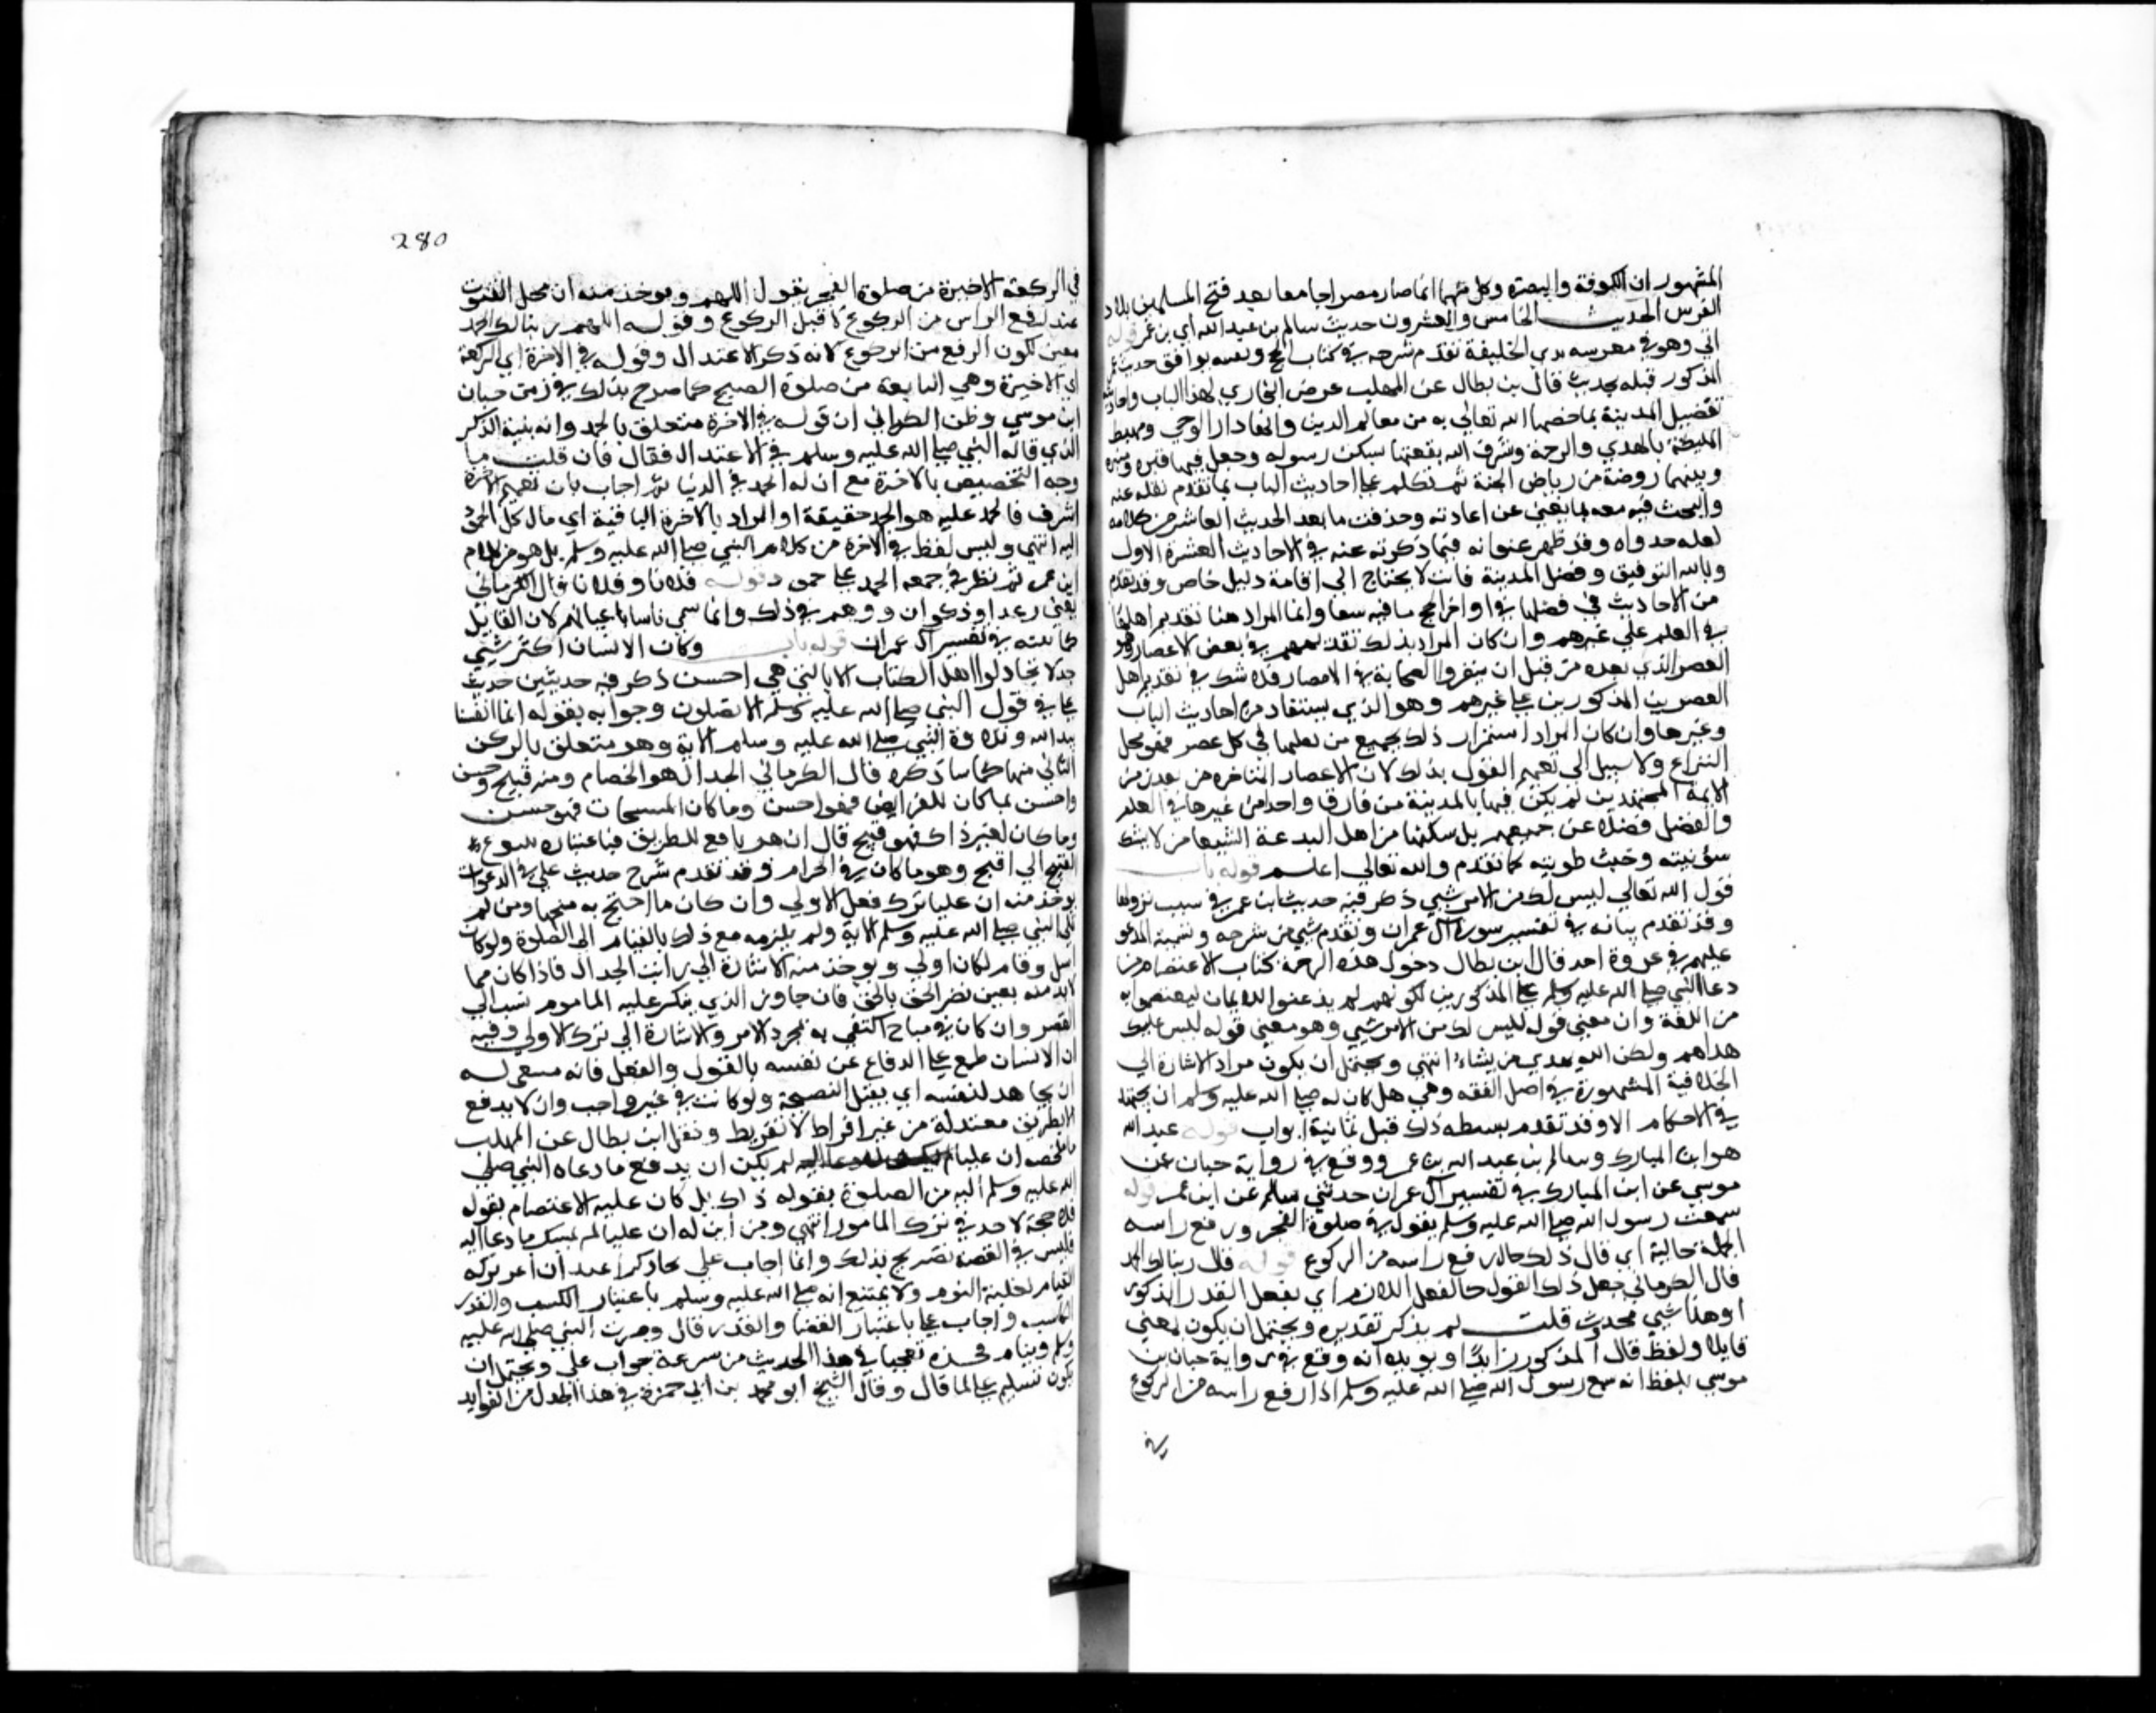 المشهور ان الكوفة والبصرة وكل منهما انما صار مصرا جامعا بعد فتح المسلمين بلاد
الفرس الحديث الخامس والعشرون حديث سالم بن عبد الله اي بن عمر قوله
اتي وهو في معرسه بذي الخليفة تقدم شرحه في كتاب الحج ونفسه يوافق حديث عمر
المذكور قبله بحديث قال بن بطال عن المهلب غرض البخاري بهذا الباب واحاديثه
تفضيل المدينة بما خصها الله تعالي به من معالم الدين وانها دار الوحي ومهبط
المليكة بالهدي والرحمة وشرف الله بقعتها بسكن رسوله وجعل فيها قبره ومنبره
وبينهما روضة من رياض الجنة ثم تكلم علي احاديث الباب بما تقدم نقله عنه
والبحث فيه معه بما يغني عن اعادته وحذفت ما بعد الحديث العاشر من كلامه
لقله جدواه وقد ظهر عنوانه فيما ذكرته عنه في الاحاديث العشرة الاول
وبالله التوفيق وفضل المدينة ثابت لا يحتاج الي اقامة دليل خاص وقد تقدم
من الاحاديث في فضلها في اواخر الحج ما فيه شفا وانما المراد هنا تقديم اهلها
في العلم علي غيرهم وان كان المراد بذلك تقديمهم في بعض الاعصار وهو
العصر الذي بعده من قبل ان يتفرق الصحابة في الامصار فلا شك في تقديم اهل
العصرين المذكورين علي غيرهم وهو الذي يستفاد من احاديث الباب
وغيرها وان كان المراد استمرار ذلك بجميع من سكنها في كل عصر فهو محل
النزاع ولا سبيل الي تعميم القول بذلك لان الاعصار المتاخره من بعد زمن
الايمة المجتهدين لم يكن فيها بالمدينة من فاق واحدا من غيرها في العلم
والفضل فضلا عن جميعهم بل سكنها من اهل البدعة الشنيعا من لا يشك
سؤ نيته وخبث طويته كما تقدم والله تعالي اعلم قوله باب
قول الله تعالي ليس لك من الامر شيي ذكر فيه حديث ابن عمر في سبب نزولها
وقد تقدم بيانه في تفسير سورة آل عمران وتقدم شي من شرحه وتسمية المدعو
عليهم في غزوة احد قال ابن بطال دخول هذه الترجمة كتاب الاعتصام من
دعا النبي صلي الله عليه وسلم علي المذكورين لكونهم لم يذعنوا للايمان ليعتصموا به
من اللعنة وان معني قوله ليس لك من الامر شيي وهو معني قوله ليس عليك
هداهم ولكن الله يهدي من يشاء انتهي ويحتمل ان يكون مراد الاشارة الي
الخلافية المشهورة في اصل الفقه وهي هل كان له صلي الله عليه وسلم ان يجتهد
في الاحكام الا وقد تقدم بسط ذلك قبل ثمانية ابواب قوله عبد الله
هو ابن المبارك وسالم بن عبد الله بن عمر ووقع في رواية حبان بن
موسي عن ابن المبارك في تفسير آل عمران حدثني سالم عن ابن عمر قوله
سمعت رسول الله صلي الله عليه وسلم يقول في صلوة الفجر ورفع راسه
الجملة حالية اي قال ذلك حال رفع راسه من الركوع قوله قال ربنا لك الحمد
قال الكرماني جعل ذلك القول كالفعل اللازم اي يفعل القدر المذكور
او هنا شيي محذوف قلت لم يذكر تقديره ويحتمل ان يكون بمعني
قايلا ولفظ قال المذكور زايدا ويويده انه وقع في رواية حبان بن
موسي بلفظ انه سمع رسول الله صلي الله عليه وسلم اذا رفع راسه من الركوع
في
280
في الركعة الاخيرة من صلوة الفجر يقول اللهم ويوخذ منه ان محل القنوت
عند رفع الراس من الركوع لا قبل الركوع وقوله اللهم ربنا لك الحمد
معين لكون الرفع من الركوع لانه ذكر الاعتدال وقوله في الاخرة اي الركعة
الاخيرة وهي الثانية من صلوة الصبح كما صرح بذلك في رواية حبان
ابن موسي وظن الكرماني ان قوله في الاخرة متعلق بالحمد وانه بقية الذكر
الذي قاله النبي صلي الله عليه وسلم في الاعتدال فقال فان قلت ما
وجه التخصيص بالاخرة مع ان له الحمد في الدنيا ثم اجاب بان نعيم الاخرة
اشرف فالحمد عليه هو الحمد حقيقة او المراد بالاخرة الباقية اي مال كل الحمد
اليه انتهي وليس لفظ في الاخرة من كلام النبي صلي الله عليه وسلم بل هو من كلام
ابن عمر ثم نظر في جمعه الحمد علي حمود قوله فلانا وفلانا قال الكرماني
يعني رعلا وذكوان ووهم في ذلك وانما سمي ناسا باعيانهم لان القايل
كما بينته في تفسير آل عمران قوله باب وكان الانسان اكثر شيي
جدلا ولا تجادلوا اهل الكتاب الا بالتي هي احسن ذكر فيه حديثين حديث
علي في قول النبي صلي الله عليه وسلم الا تصلون وجوابه بقوله انما انفسنا
بيد الله وتلاوة النبي صلي الله عليه وسلم الاية وهو متعلق بالركن
الثاني منها كما ساذكره قال الكرماني الجدال هو الخصام ومنه قبيح وحسن
واحسن بما كان للفرايض فهو احسن وما كان المستحبات فهو حسن
وما كان لغير ذلك فهو قبيح قال ان هو تابع للطريق فباعتباره يتنوع
القبيح الي اقبح وهو ما كان في الحرام وقد تقدم شرح حديث علي في الدعوات
يوخذ منه ان عليا ترك فعل الاولي وان كان ما احتج به متجها ومن ثم
تلي النبي صلي الله عليه وسلم الاية ولم يلزمه مع ذلك بالقيام الي الصلوة ولو كان
امتثل وقام لكان اولي ويوخذ منه الاشارة الي مراتب الجدال فاذا كان مما
لابد منه بعين نصر الحق بالحق فان جاوز الذي ينكر عليه المامور نسب الي
القصر وان كان في مباح اكتفي به بمجرد الامر والاشارة الي ترك الاولي وفيه
ان الانسان طبع علي الدفاع عن نفسه بالقول والفعل فانه ينبغي له
ان يجاهد لنفسه اي يقبل النصيحة ولو كانت في غير واجب وان لا يدفع
الا بطريق معتدلة من غير افراط لا تفريط ونقل ابن بطال عن المهلب
ما ملخصه ان عليا لم يكن ان يدفع ما دعاه النبي صلي
الله عليه وسلم اليه من الصلوة بقوله ذلك بل كان عليه الاعتصام بقوله
فلا حجة لاحد في ترك المامور انتهي ومن اين له ان عليا لم يمتثل ما دعا اليه
فليس في القصة تصريح بذلك وانما اجاب علي بما ذكر اعتذارا عن تركه
القيام لغلبة النوم ولا يمتنع انه صلي الله عليه وسلم باعتبار الكسب والقدر
الكاسب واجاب علي باعتبار القضا والقدر قال وضرب النبي صلي الله عليه
وسلم فخذه تعجبا في هذا الحديث من سرعة جواب علي ويحتمل ان
يكون تسليم علي لما قال وقال الشيخ ابو محمد بن ابي جمرة في هذا الجدل من الفوايد